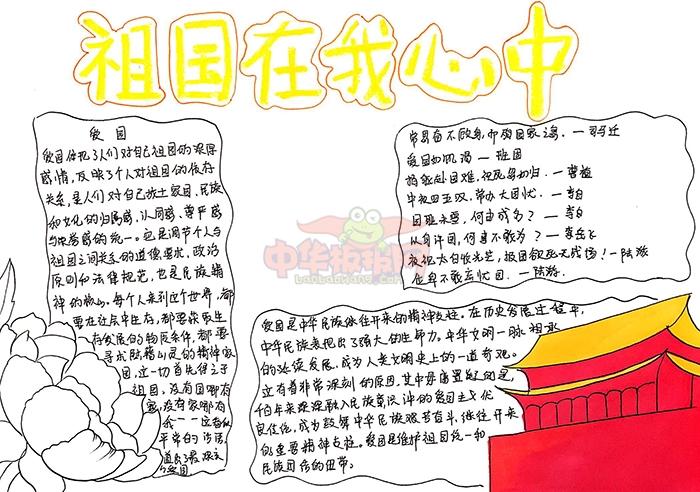 祖国在我心中
爱国
爱国体现了人们对自己祖国的深厚
感情,反映了个人对祖国的依存
关系,是人们对自己故土家园、民族
和文化的归属感、认同感、尊严感
与荣誉感的统一。也是调节个人与
祖国之间关系的道德要求、政治
原则和法律规范,也是民族精
神的核心。每个人来到这个世界,都
要在社会中生存,都要获取生
存发展的物质条件,都要
寻求
的精神家
园,这一切首先得之于
祖国,没有国哪有
家,没有家哪有
我
平常的
道出了最
常思奋不顾身,而殉国家之急。—司马迁
爱国如饥渴 — 班固
捐躯赴国难,视死忽如归。—曹植
中夜四五叹,常为大国忧。—李白
以身许国,何事不敢为?—岳飞
位卑不敢忘忧国。—陆游
爱国是中华民族继往开来的精神支柱。在历史发展过程中,
中华民族表现出了强大的生命力。中华文明一脉相承
的延续发展,成为人类文明史上的一道奇观。
这有着非常深刻的原因,其中最重要的是,
千百年来深深融入民族意识之中的爱国主义优
良传统,成为鼓舞中华民族艰苦奋斗、继往开来
的重要精神支柱。爱国是维护祖国统一和
民族团结的纽带。
中华板报网
banbaowang.com